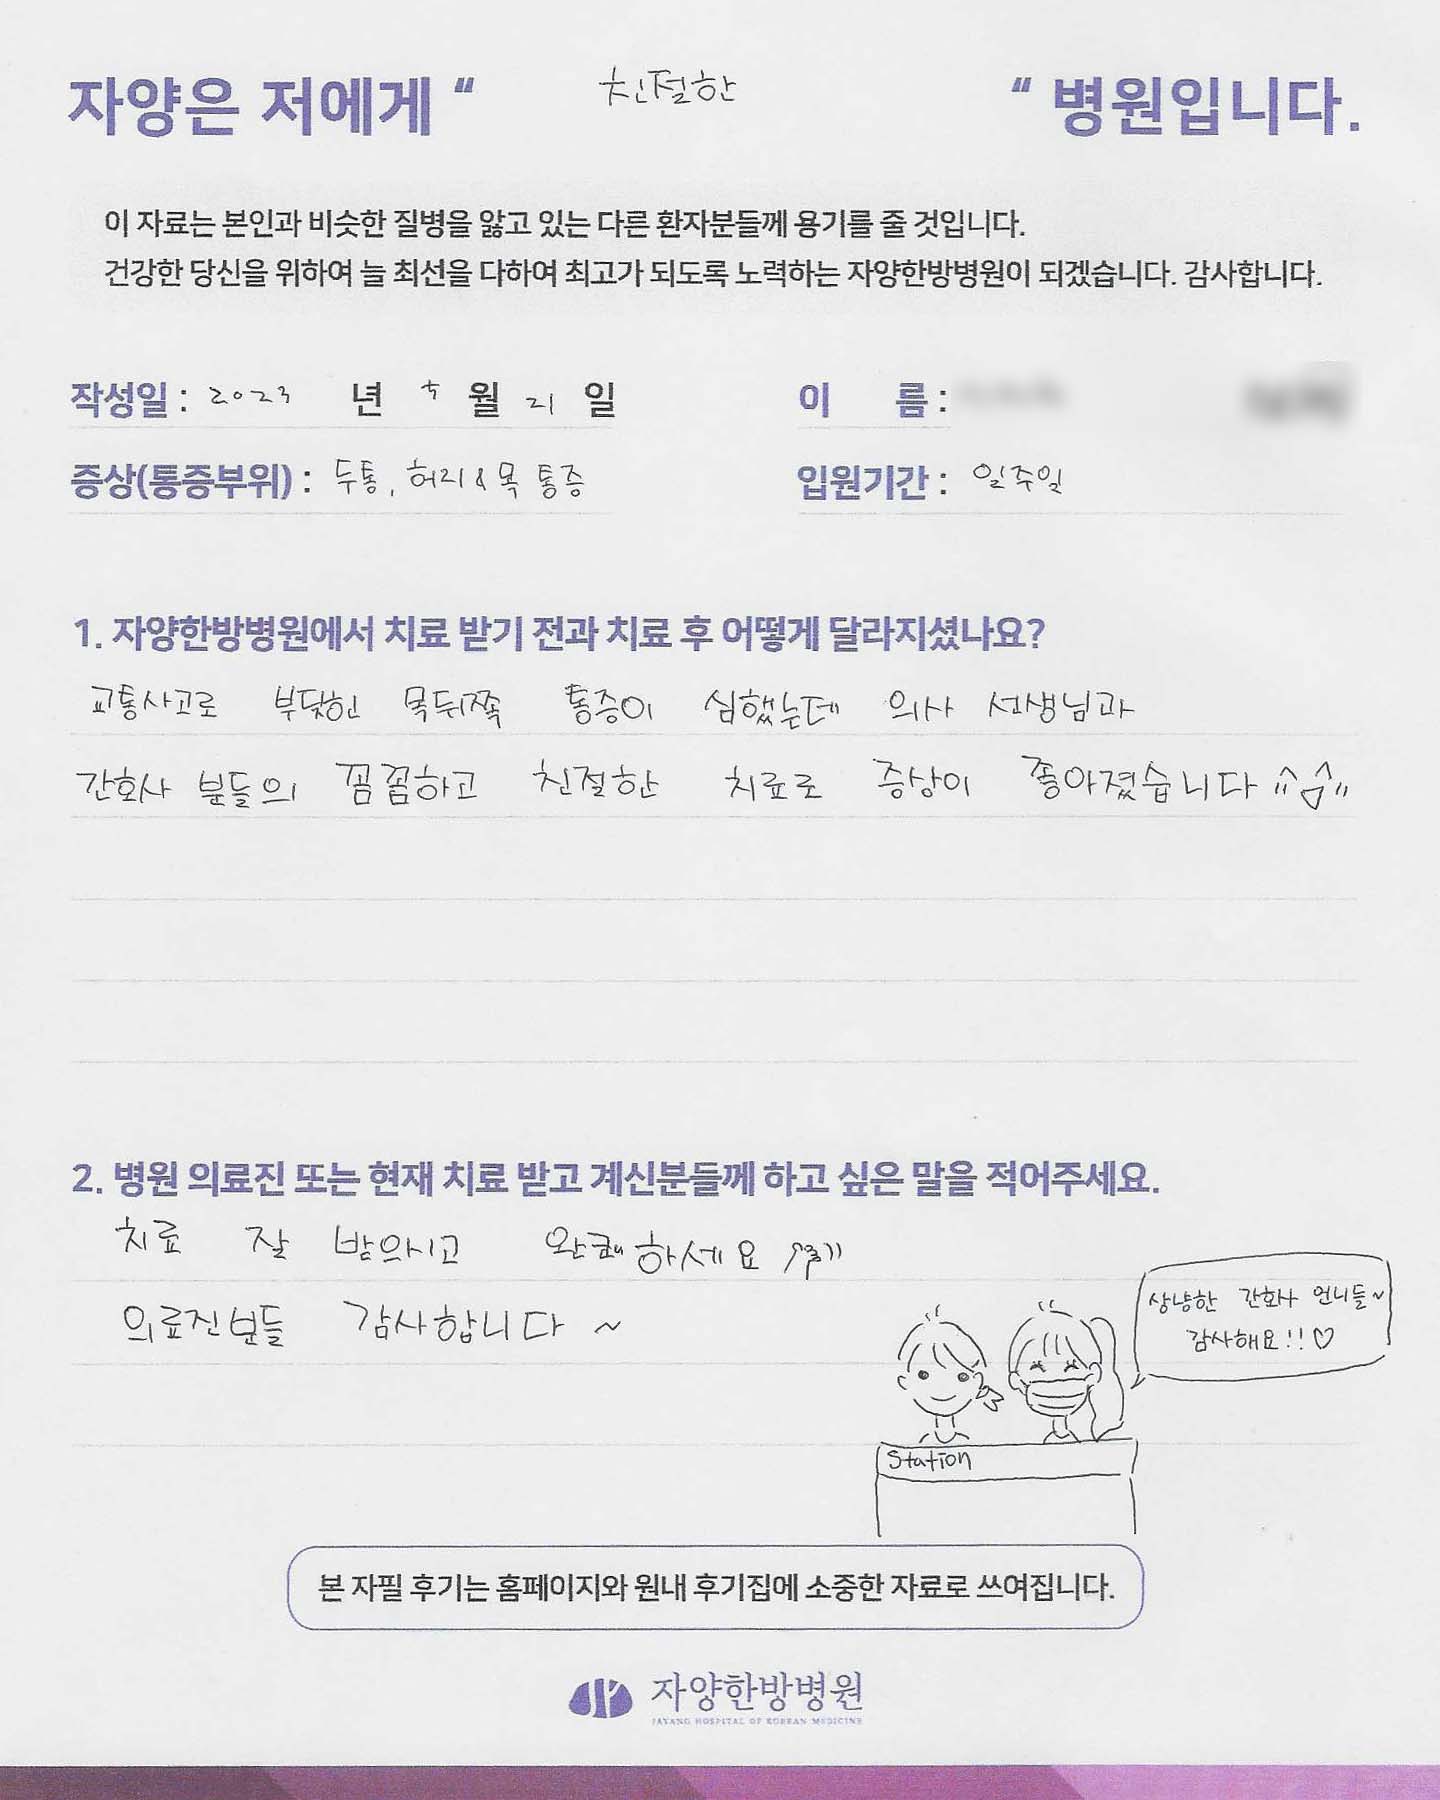 자양은 저에게 “ 친절한 “ 병원입니다.
이 자료는 본인과 비슷한 질병을 앓고 있는 다른 환자분들께 용기를 줄 것입니다.
건강한 당신을 위하여 늘 최선을 다하여 최고가 되도록 노력하는 자양한방병원이 되겠습니다. 감사합니다.
작성일 : 2023 년 월 21 일 이 름 :
증상(통증부위) : 두통, 허리 & 목 통증 입원기간 : 일주일
1. 자양한방병원에서 치료 받기 전과 치료 후 어떻게 달라지셨나요?
교통사고로 부딪힌 목뒤쪽 통증이 심했는데 의사 선생님과
간호사 분들의 꼼꼼하고 친절한 치료로 증상이 좋아졌습니다
2. 병원 의료진 또는 현재 치료 받고 계신분들께 하고 싶은 말을 적어주세요.
치료 잘 받으시고 완쾌하세요
의료진분들 감사합니다 ~
상냥한 간호사 언니들~
감사해요!!♡
Station
본 자필 후기는 홈페이지와 원내 후기집에 소중한 자료로 쓰여집니다.
자양한방병원
JAYANG HOSPITAL OF KOREAN MEDICINE